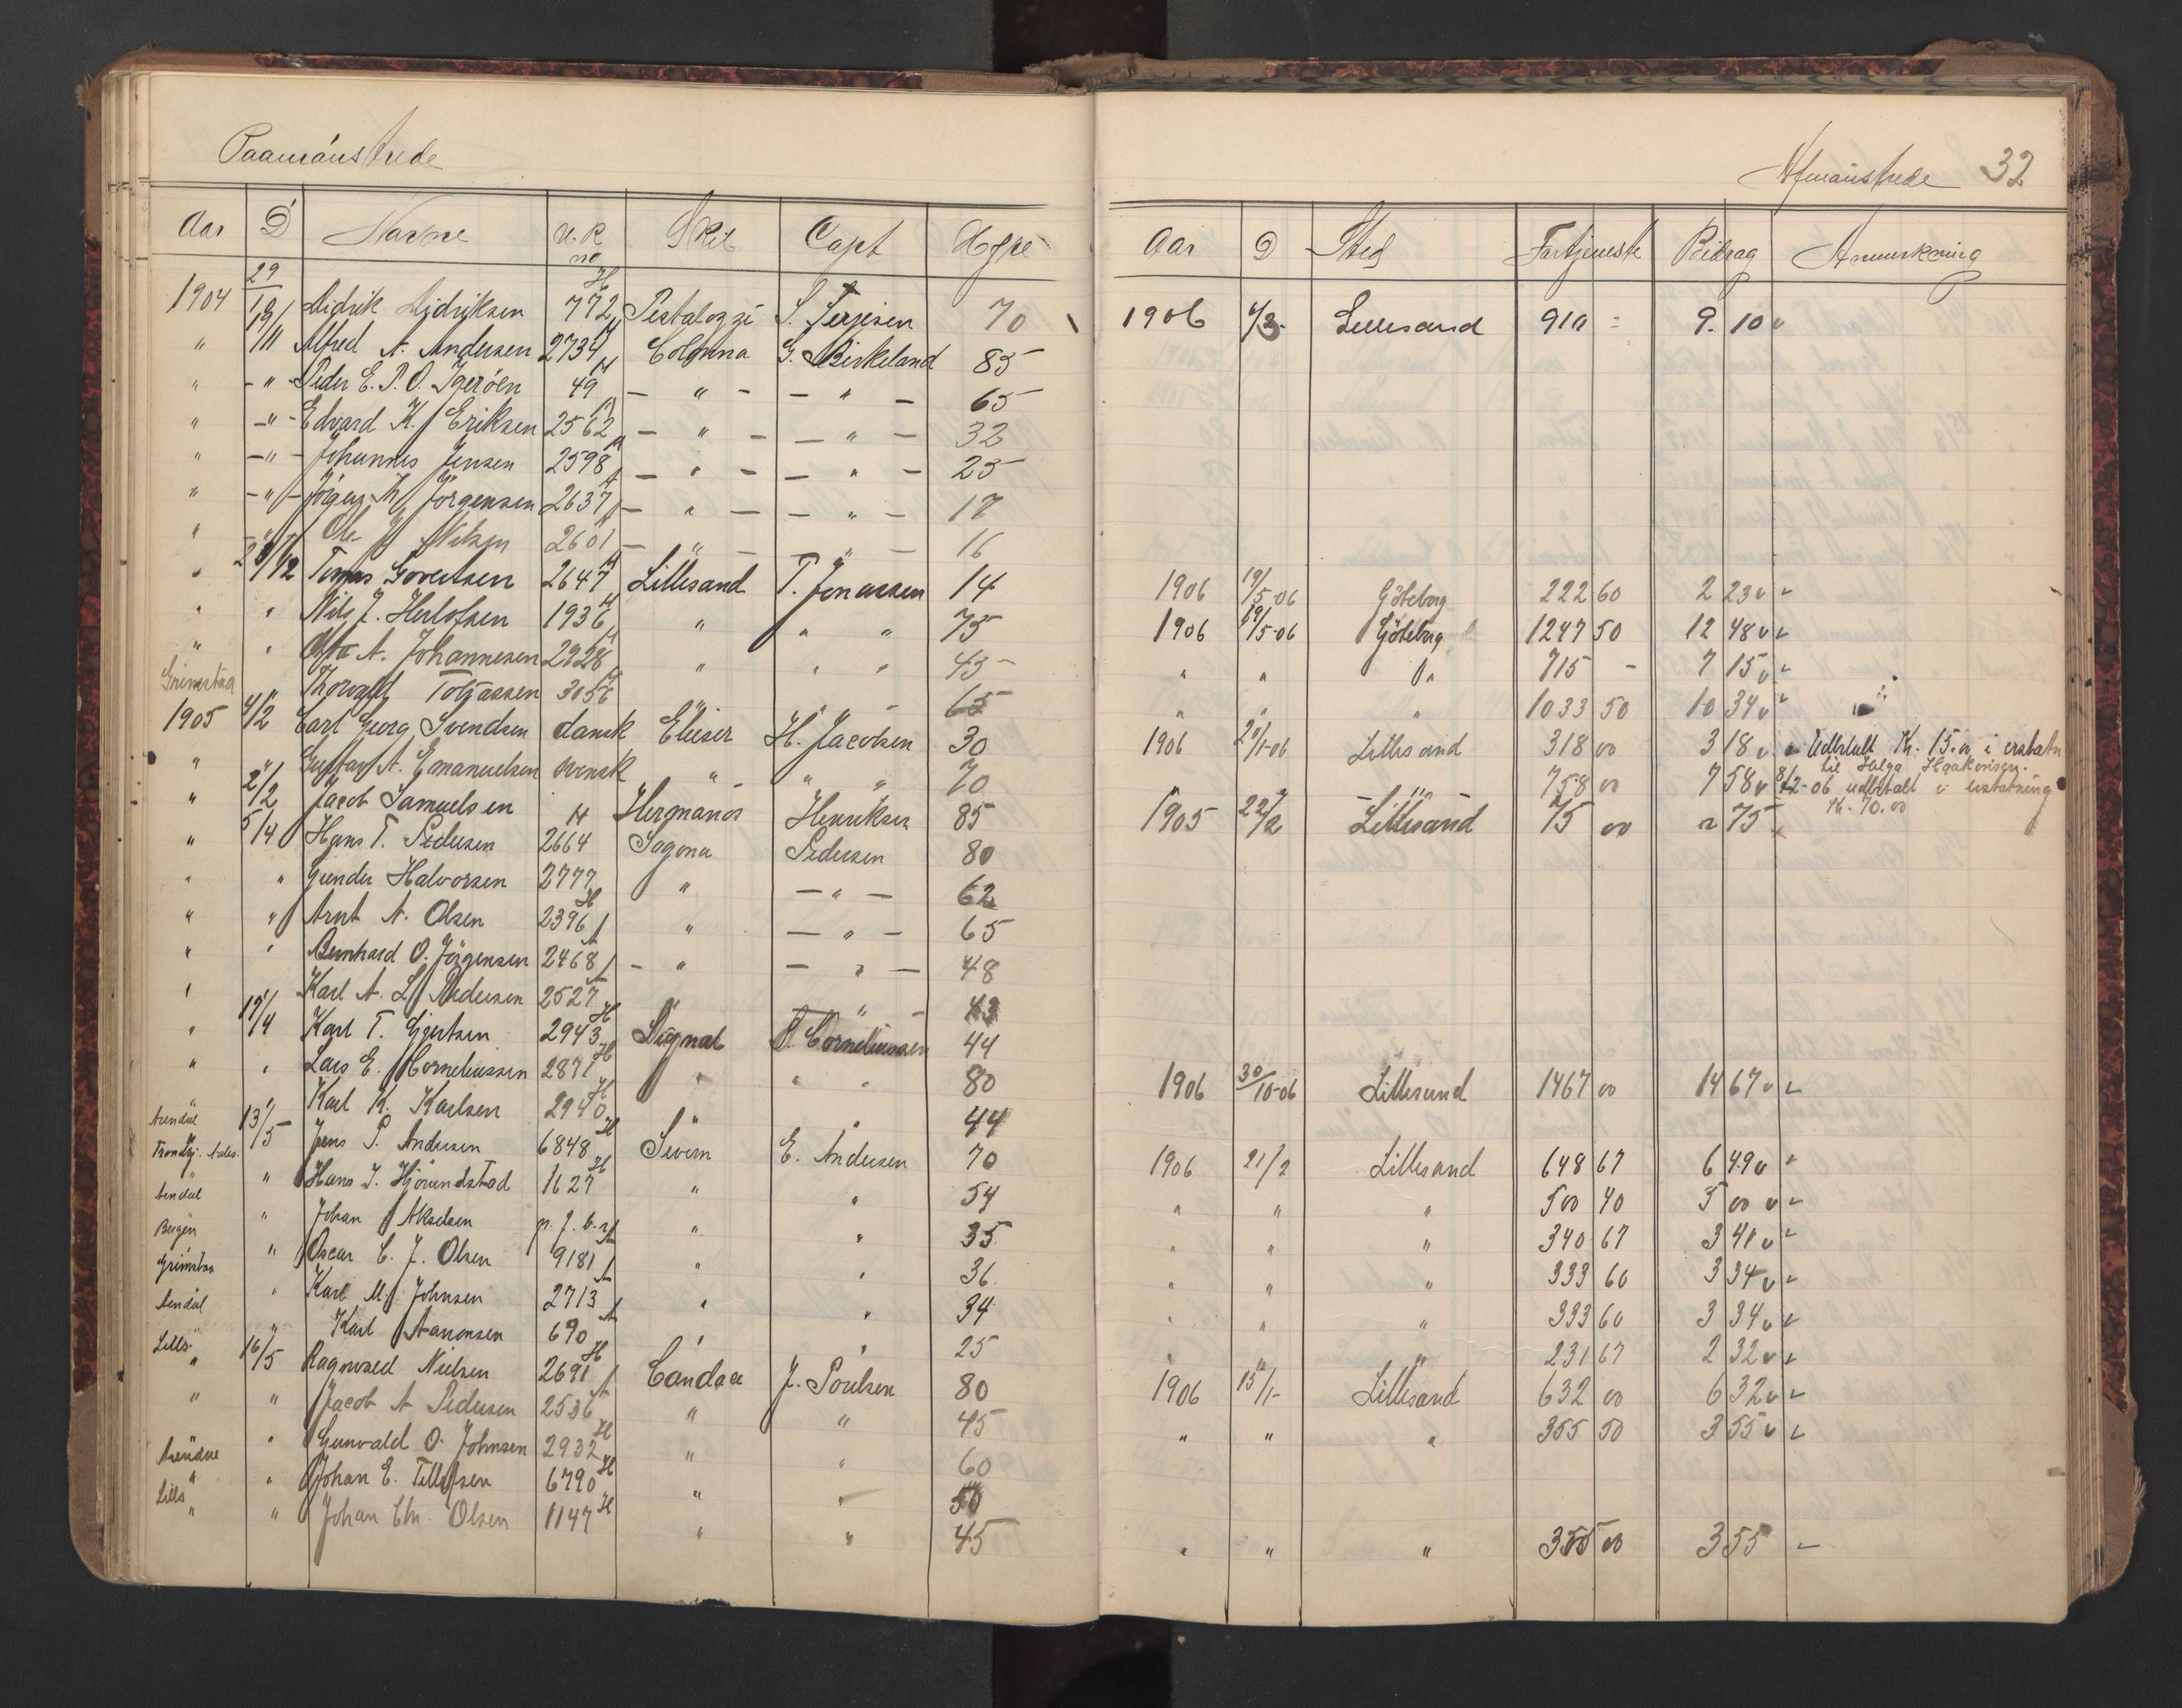 Paamönstrede
Afmönstrede 32
Aar D Navne U.R. no Skib Capt Hyre
Aar D Sted Fortjeneste Bidrag Anmerkning
1904 29/10 Didrik Didriksen 772 H Pestalozzi S. Terjesen 70 1906 4/3 Lillesand 910 = 9. 10 v
" 19/11 Alfred A. Andersen 2734 Colonna G. Birkeland 85
" - " - Peder E. P. O. 49 H - " - - " - 65
" - " - Edvard K. Eriksen 2562 - " - - " - 32
" - " - Johannes Jensen 2598 - " - - " - 25
" - " - Jörgen K. Jörgensen 2637 A - " - - " - 17
" - Ole J. Nilsen 2601 A - " - " - 16
" 28/12 Tomas Govertsen 2647 Lillesand T. Jonassen 14 1906 19/5-06 Göteborg 222 60 2 23 v v
" " Nils J. Herlofsen 1936 H " " " 75 1906 19/5-06 Göteborg 1247 50 12 48 v v
" " Otto A. Johannesen 2928 " " " 45 " " " 715 - 7 15 v v
Grimstad " Thorvald Totjassen 3056 " " " 65 " " " 1033 50 10 34 v v
1905 4/2 Carl Georg Svendsen dansk Elieser H. Jacobsen 30 1906 20/1-06 Lillesand 318 00 3 18 v v Udbetalt Kr. 15.00 i erstatn
" " Gustav A. Emanuelsen svensk " " " 70 - " - 758 00 7 58 v til Helga Haakonsen. 8/2-06 udbetalt i erstatning Kr. 70.00
" 2/2 Jacob Samuelsen H Hermanos Henriksen 85 1905 22/2 Lillesand 75 00 " 75
" 5/4 Hans T. Pedersen 2664 Sagona Pedersen 80
" " Gunder Halvorsen 2777 " - " - 62
" " Arnt A. Olsen 2396 H " - " - 65
" " Bernhard O. Jörgensen 2468 A - " - " - 48
" " Karl A. L. Pedersen 2527 A " - " - 43
" 17/4 Karl T. Gjertsen 2943 H Signal P. Corneliussen 44
" " Lars E. Corneliussen 2871 H " " " 80 1906 30/10-06 Lillesand 1467 00 14 67 v v
" " Karl K. Karlsen 2940 H " " 44
Arendal 13/5 Jens P. Andersen 6848 H Severn E. Andersen 70 1906 21/2 Lillesand 648 67 6 49 v v
Trondhj. " Hans J. Hjörundstad 1627 H " " 54 " " " 500 40 5 00 v v
Arendal " Johan Akselsen " " 35 " " " 340 67 3 41 v v
Bergen " Oscar C. J. Olsen 9181 A " " 36 " " " 333 60 3 34 v v
Grimstad " Karl M. Johnsen 2713 A " " 34 " " " 333 60 3 34 v v
Arendal " Karl Aanonsen 690 A " " 25 " " " 231 67 2 32 v v
Lills. 16/5 Ragnvald Nielsen 2691 H Candace J. Poulsen 80 1906 15/1- Lillesand 632 00 6 32 v v
" " Jacob A Pedersen 2536 A " " 45 " " " 355 50 3 55 v v
" " Gunvald O. Johnsen 2932 H " " 60
Arendal " Johan E. Tellefsen 6790 H " " 50
Lills " Johan Chr. Olsen 1147 H " " 45 " " " 355 00 3 55 -